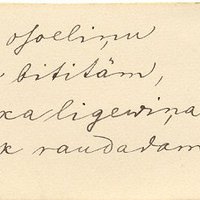 osoeliņu
bititām,
ka ligewiņa
k raudadam